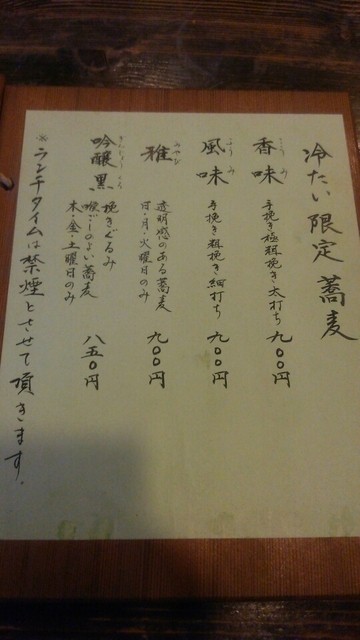 冷たい限定蕎麦
香味
こうみ
手挽き極粗挽き太打ち
九〇〇円
風味
ふうみ
手挽き粗挽き細打ち
九〇〇円
雅
みやび
透明感のある蕎麦
日・月・火曜日のみ
九〇〇円
吟醸黒
ぎんじょうくろ
挽きぐるみ
喉ごしのよい蕎麦
木・金・土曜日のみ
八五〇円
※ランチタイムは禁煙とさせて頂きます。